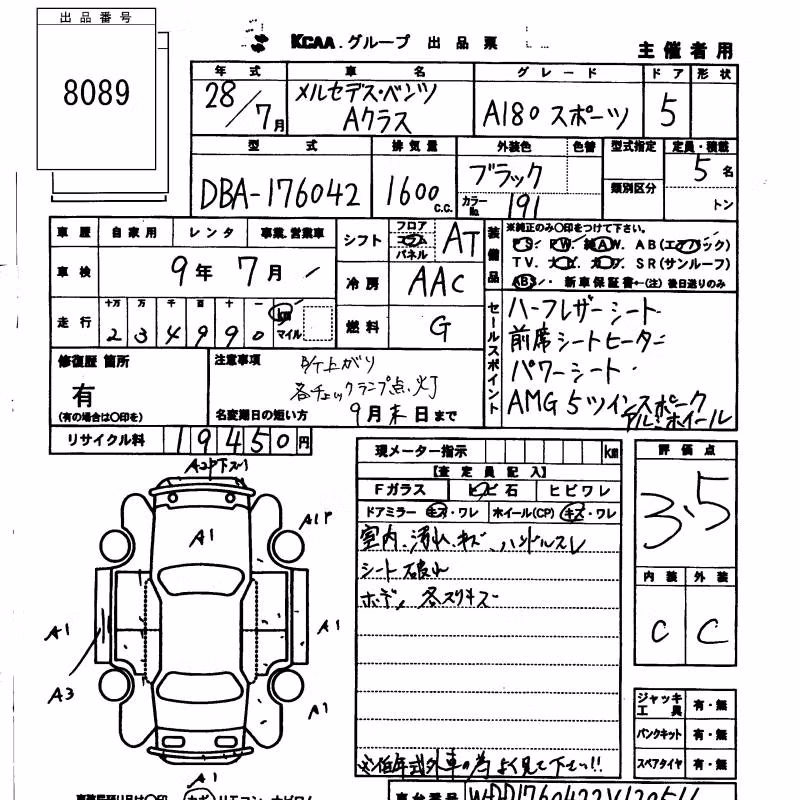 出品番号
8089
KCAA.グループ 出品票
主催者用
年式 車名 グレード ドア 形状
28/7月 メルセデス・ベンツ Aクラス A180 スポーツ 5
型式 排気量 外装色 色替 型式指定 定員・積載
DBA-176042 1600 C.C. ブラック カラーNo. 191 類別区分 5名 トン
車歴 自家用 レンタ 事業.営業車
シフト フロア コラム パネル AT
装備品 ※純正のみ○印をつけて下さい。
PS. PW. 純AW. AB(エアバック)
TV. ナビ. カワ. SR(サンルーフ)
ABS. 新車保証書←(注)後日送りのみ
車検 9年7月
冷房 AAC
走行 十万 万 千 百 十 一
234990 km マイル
燃料 G
セールスポイント
ハーフレザーシート
前席シートヒーター
パワーシート
AMG 5ツインスポーク
アルミホイール
修復歴 箇所
有
(有の場合は○印を)
注意事項
B/T上がり
各チェックランプ点灯
名変期日の短い方 9月末日まで
リサイクル料 19450円
現メーター指示 km
【査定員記入】
Fガラス ヒビ石 ヒビワレ
ドアミラー キズ・ワレ ホイール(CP) キズ・ワレ
室内、汚れ、キズ、ハンドルスレ
シート破れ
ボデー 各スリキズ
評価点
3.5
内装 外装
C C
A2P下スリ
A1
A1P
A1
A1
A3
A1
A1
ジャッキ工具 有・無
パンクキット 有・無
スペアタイヤ 有・無
低年式外車の為よく見て下さい!!